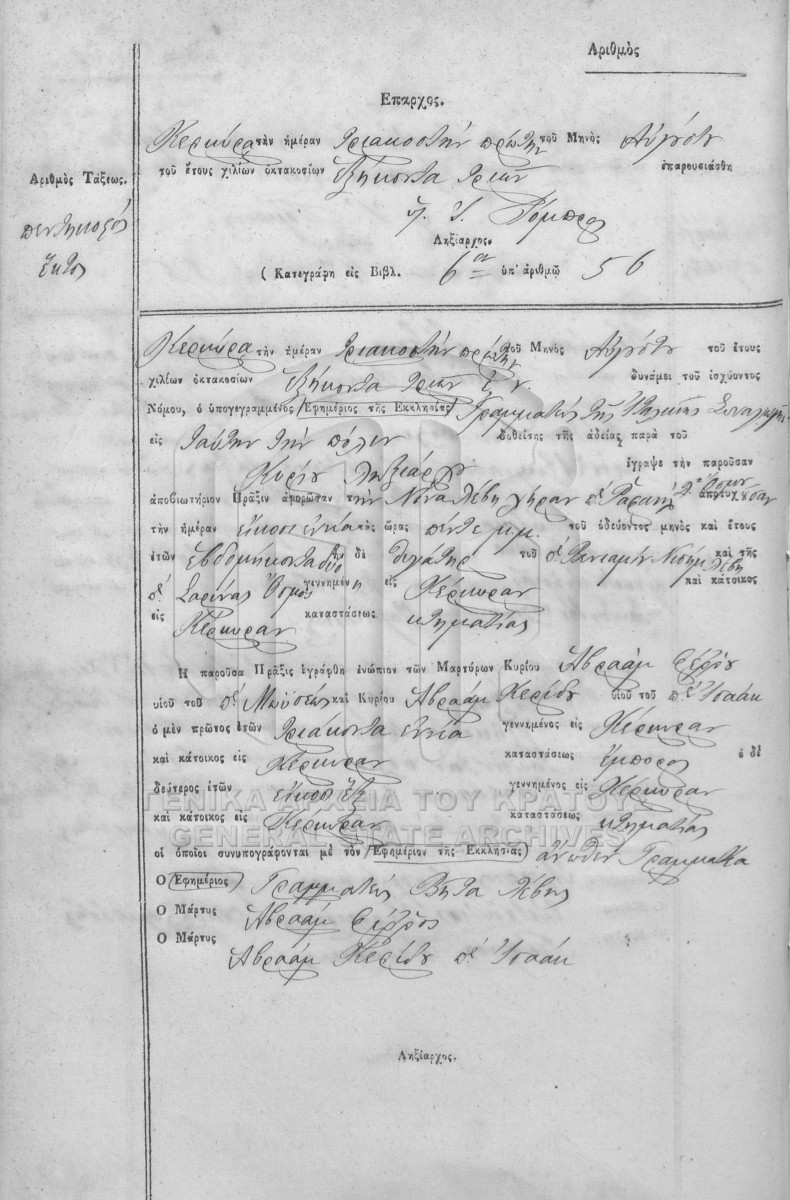 Αριθμὸς
Επαρχος.
Κερκύρα τὴν ἡμέραν τριακοστὴν πρώτην τοῦ Μηνὸς Αὐγούστου
Αριθμὸς Τάξεως.
τοῦ ἔτους χιλίων ὀκτακοσίων ἑξήκοντα τριῶν ἐπαρουσιάσθη
πεντηκοστὸς
ἕκτος
Ληξίαρχος.
( Κατεγράφη εἰς Βιβλ. 6ον ὑπ' ἀριθμῷ 56
Κερκύρα τὴν ἡμέραν τριακοστὴν πρώτην τοῦ Μηνὸς Αὐγούστου τοῦ ἔτους
χιλίων ὀκτακοσίων ἑξήκοντα τριῶν Ε. Ν. δυνάμει τοῦ ἰσχύοντος
Νόμου, ὁ ὑπογεγραμμένος (Ἐφημέριος τῆς Ἐκκλησίας) Γραμματεὺς τῆς Συναγωγῆς
εἰς ταύτην τὴν πόλιν δοθείσης τῆς ἀδείας παρὰ τοῦ
Κυρίου Ληξιάρχου ἔγραψε τὴν παροῦσαν
ἀποβιωτήριον Πρᾶξιν ἀφορῶσαν τὴν Νόνα Λέβη χήραν
τὴν ἡμέραν εἴκοσι ἐννέα τὰς ὥρας πέντε μ.μ. τοῦ ὁδεύοντος μηνὸς καὶ ἔτους
ἐτῶν ἑβδομήκοντα δύο τὴν δὲ θυγατηρ τοῦ π.ε Λέβη καὶ τῆς
π.ε Σαρίνας Ὄσμος γεννημένη εἰς Κέρκυραν καὶ κάτοικος
εἰς Κέρκυραν καταστάσεως κτηματίας
Ἡ παροῦσα Πρᾶξις ἐγράφθη ἐνώπιον τῶν Μαρτύρων Κυρίου Ἀβραὰμ
υἱοῦ τοῦ π.ε Μωϋσέως καὶ Κυρίου Ἀβραὰμ Κερίδο υἱοῦ τοῦ π.ε Ἰσαὰκ
ὁ μὲν πρῶτος ἐτῶν τριάκοντα ἐννέα γεννημένος εἰς Κέρκυραν
καὶ κάτοικος εἰς Κέρκυραν καταστάσεως ἔμπορος ὁ δὲ
δεύτερος ἐτῶν εἴκοσι ἓξ γεννημένος εἰς Κέρκυραν
καὶ κάτοικος εἰς Κέρκυραν καταστάσεως κτηματίας
οἱ ὁποῖοι συνυπογράφονται μὲ τὸν (Ἐφημέριον τῆς Ἐκκλησίας) ἄνωθεν Γραμματέα
Ο (Ἐφημέριος) Γραμματεὺς Βήτα Λέβης
Ο Μάρτυς Ἀβραὰμ
Ο Μάρτυς
Ἀβραὰμ Κερίδο π.ε Ἰσαάκ
Ληξίαρχος.
ΓΕΝΙΚΑ ΑΡΧΕΙΑ ΤΟΥ ΚΡΑΤΟΥΣ
GENERAL STATE ARCHIVES